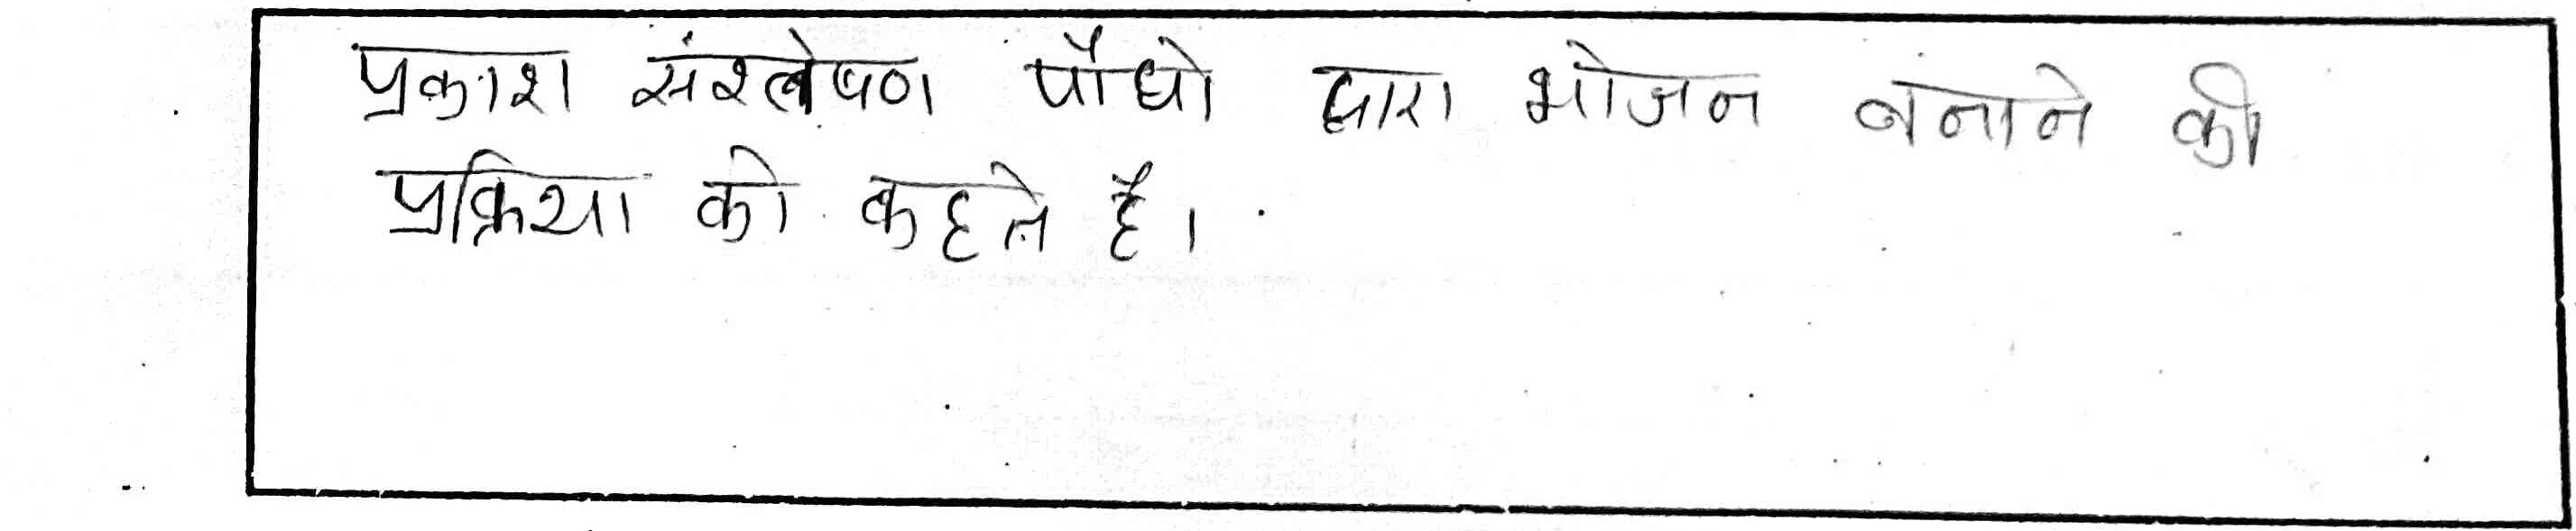 प्रकाश संश्लेषण पौधो द्वारा भोजन बनाने की
प्रक्रिया को कहते है।